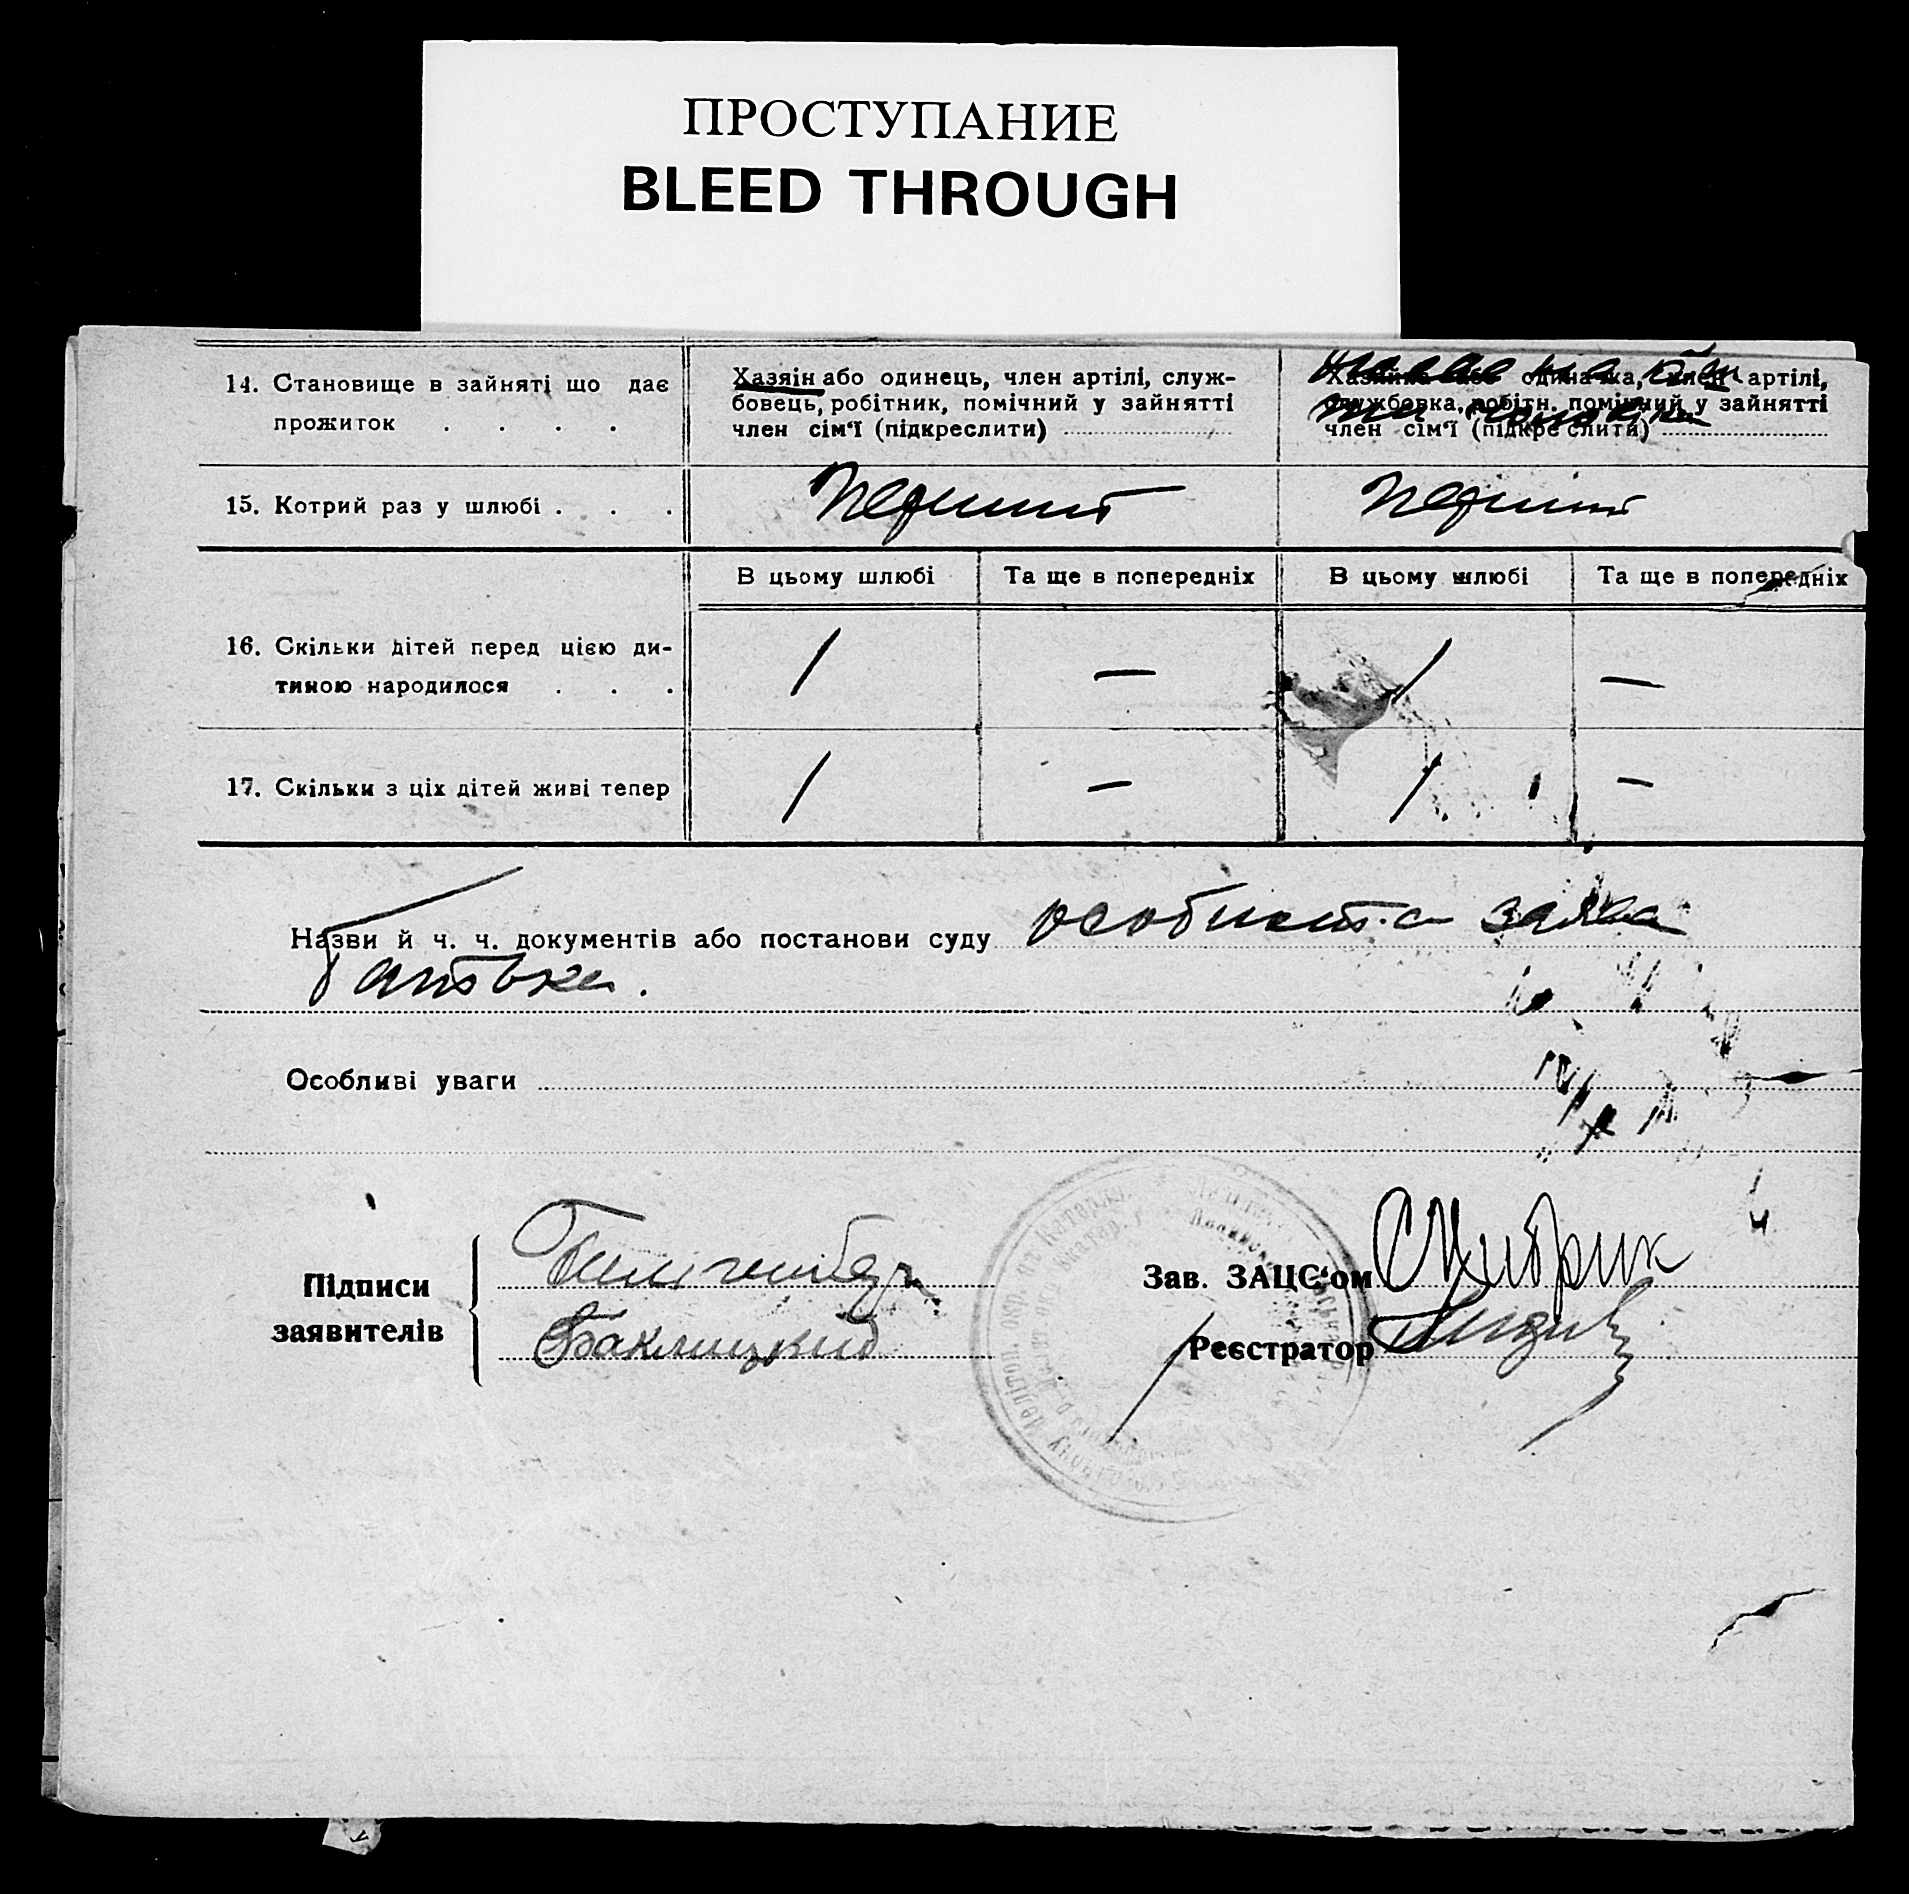 ПРОСТУПАНИЕ
BLEED THROUGH
14. Становище в зайняті що дає
прожиток . . . .
Хазяін або одинець, член артілі, служ-
бовець, робітник, помічний у зайнятті
член сім'ї (підкреслити)
Хазяйка або одиначка, член артілі,
службовка, робітн. помічний у зайнятті
член сім'ї (підкреслити)
15. Котрий раз у шлюбі . . .
Перший
Перший
В цьому шлюбі Та ще в попередніх В цьому шлюбі Та ще в попередніх
16. Скільки дітей перед цією ди-
тиною народилося . . .
1 — 1 —
17. Скільки з ціх дітей живі тепер
1 — 1 —
Назви й ч. ч. документів або постанови суду особиста заява
батька.
Особливі уваги
Підписи
заявителів
Баклицкий
Зав. ЗАЦС'ом
Реєстратор